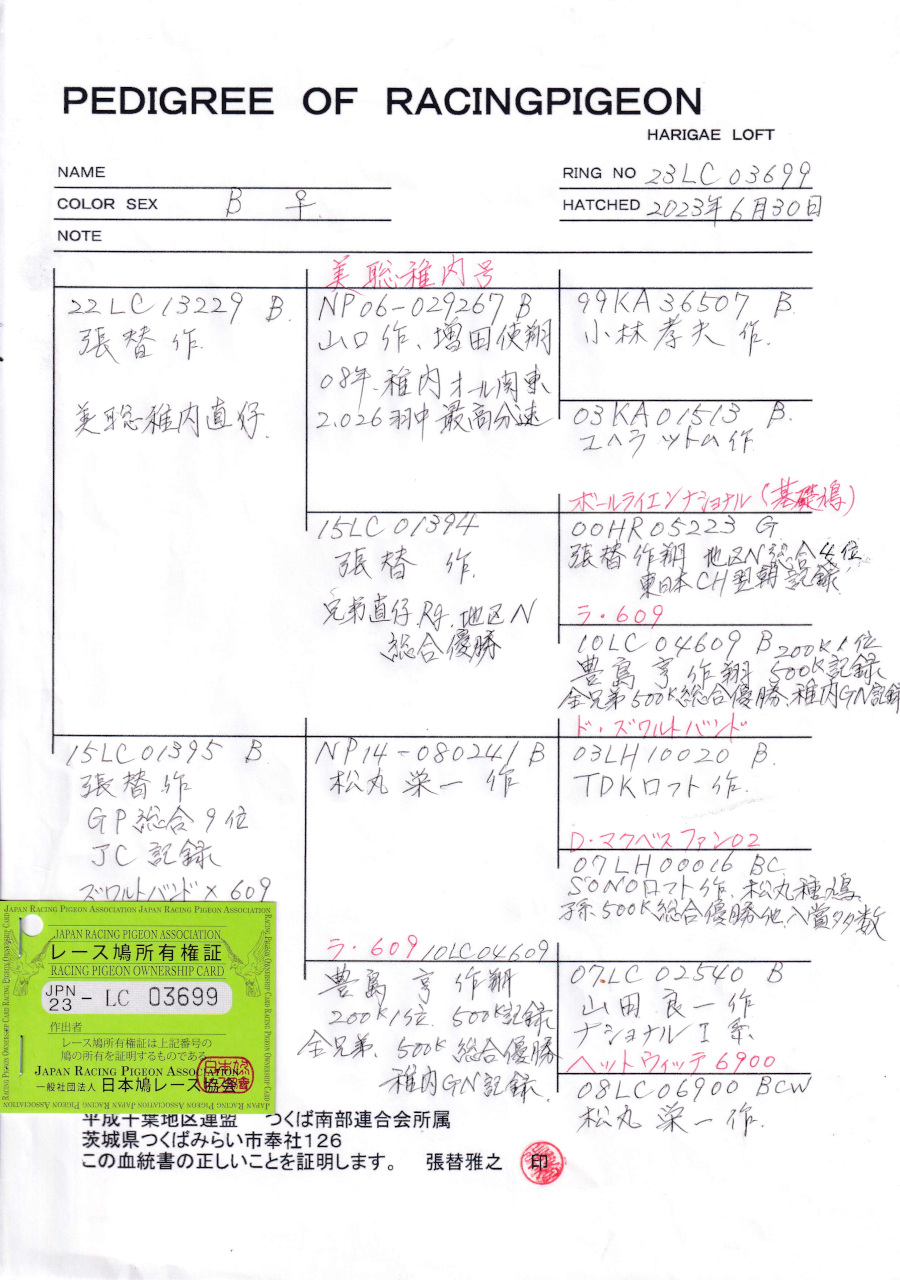 PEDIGREE OF RACINGPIGEON
HARIGAE LOFT
NAME
RING NO 23LC 03699
COLOR SEX B ♀
HATCHED 2023年6月30日
NOTE
22LC13229 B.
張替作.
美聡稚内直仔.
美聡稚内号
NP06-029267 B
山口作、増田使翔
08年.稚内オール関東
2.026羽中最高分速
99KA36507 B.
小林孝夫作.
03KA01513 B.
ユハラットム作
15LC01394
張替作.
兄弟直仔.Rg.地区N
総合優勝
ポールライエンナショナル(基礎鳩)
00HR05223 G
張替作翔 地区N総合4位
東日本CH翌朝記録
ラ・609
10LC04609 B 200K1位
豊島亨作翔 500K記録
全兄弟500K総合優勝、稚内GN記録
15LC01395 B
張替作
GP総合9位
JC記録
ズワルトバンド×609
NP14-080241 B
松丸栄一作
ド・ズワルトバンド
03LH10020 B.
TDKロフト作.
D・マクベスファン02
07LH00016 BC
SONOロフト作.松丸種鳩.
孫500K総合優勝他入賞多数
ラ・609 10LC04609
豊島亨作翔
200K1位. 500K記録
全兄弟. 500K総合優勝
稚内GN記録.
07LC02540 B
山田良一作
ナショナルI系
ヘットウィッテ6900
08LC06900 BCW
松丸栄一作.
JAPAN RACING PIGEON ASSOCIATION JAPAN RACING PIGEON ASSOCIATION
JAPAN RACING PIGEON ASSOCIATION
レース鳩所有権証
RACING PIGEON OWNERSHIP CARD
JPN 23 - LC 03699
作出者
レース鳩所有権証は上記番号の
鳩の所有を証明するものである
JAPAN RACING PIGEON ASSOCIATION
一般社団法人 日本鳩レース協会
平成千葉地区連盟 つくば南部連合会所属
茨城県つくばみらい市奉社126
この血統書の正しいことを証明します。 張替雅之 印